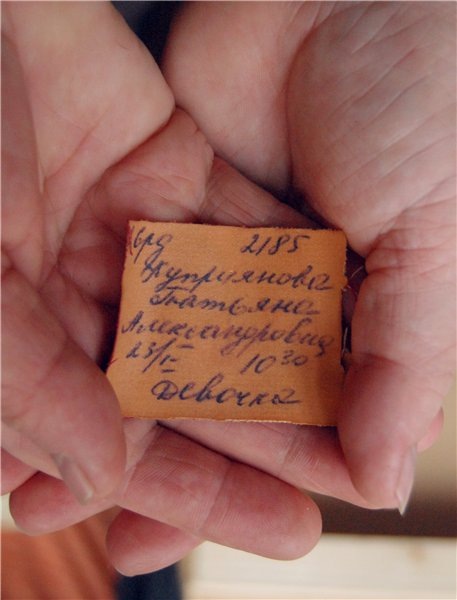 6рд 2185
Куприянова
Татьяна
Александровна
23/II 10³⁰
Девочка